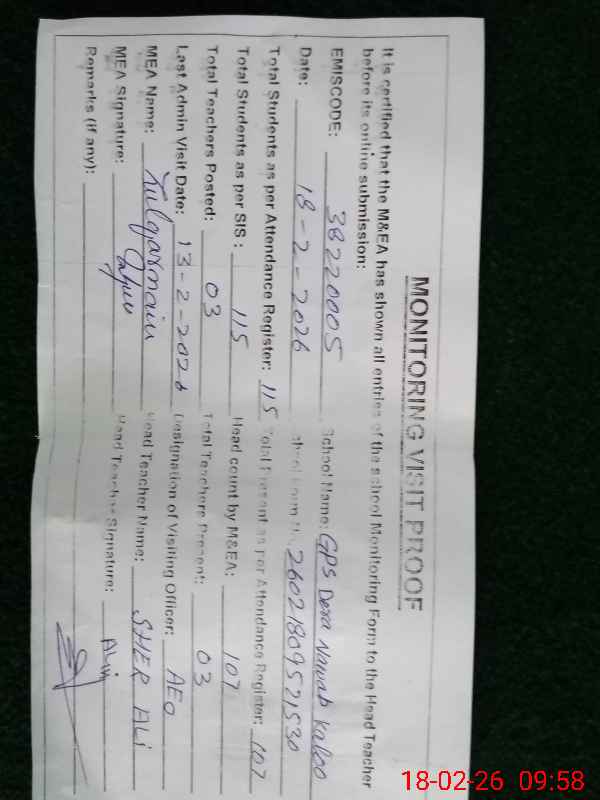 MONITORING VISIT PROOF
It is certified that the M&EA has shown all entries of the school Monitoring Form to the Head Teacher
before its online submission:
EMISCODE: 38220005 School Name: GPS Dera Nawab Kaloo
Date: 18-2-2026 School Form No. 26021809521530
Total Students as per Attendance Register: 115 Total Present as per Attendance Register: 107
Total Students as per SIS: 115 Head count by M&EA: 107
Total Teachers Posted: 03 Total Teachers Present: 03
Last Admin Visit Date: 13-2-2026 Designation of Visiting Officer: AEO
MEA Name: Zulqarnain Head Teacher Name: SHER ALi
MEA Signature: Head Teacher Signature: Ali
Remarks (if any):
18-02-26 09:58